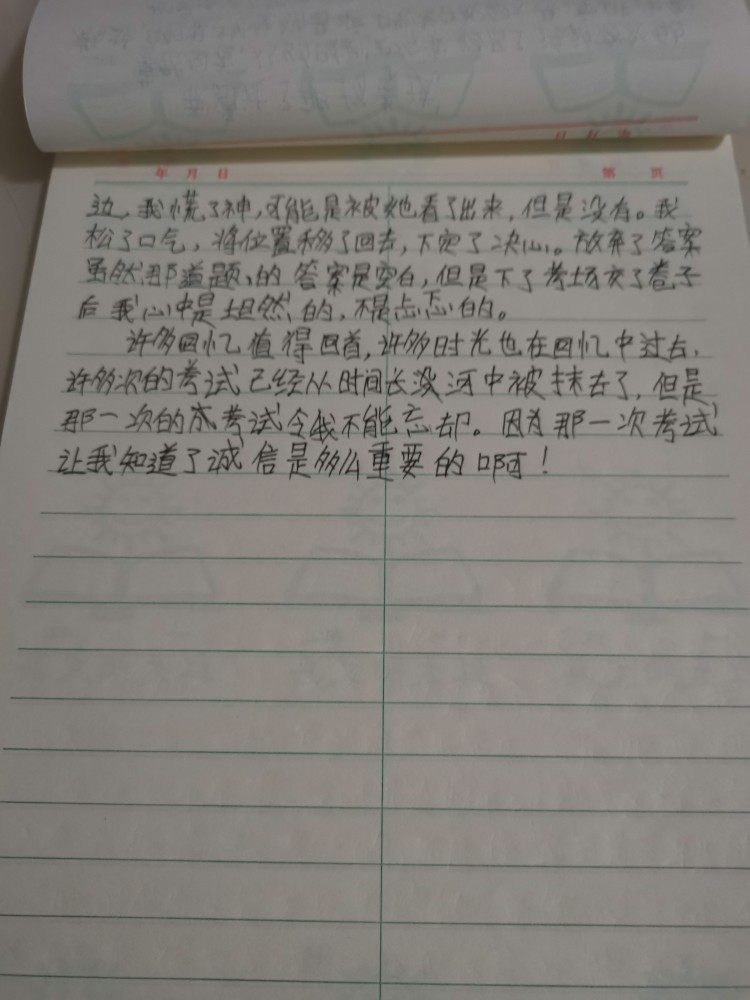 年 月 日 第 页
边，我慌了神，可能是被她看了出来，但是没有。我
松了口气，将位置移了回去，下定了决心。放弃了答案
虽然那道题的答案是空白，但是下了考场交了卷子
后我心中是坦然的，不是忐忑的。
许多回忆值得回首，许多时光也在回忆中过去，
许多次的考试已经从时间长没河中被抹去了，但是
那一次的考试令我不能忘却。因为那一次考试
让我知道了诚信是多么重要的啊！